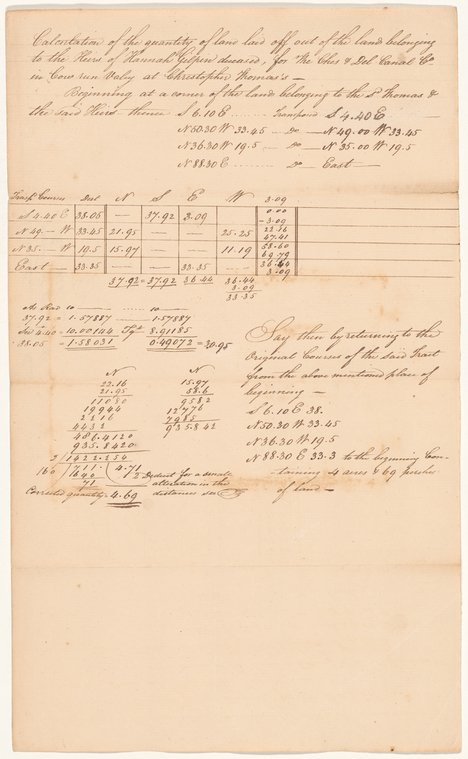 Calculation of the quantity of land laid off out of the land belonging
to the Heirs of Hannah Gilpin deceased, for the Ches & Del Canal Co
in Cow run Valy at Christopher Thomas's —
Beginning at a corner of the land belonging to the Sd Thomas &
the said Heirs thence S 6.10 E ........ Transposd S 4.40 E
N 50.30 W 33.45 — Do — N 49.00 W 33.45
N 36.30 W 19.5 — Do — N 35.00 W 19.5
N 88.30 E ........ Do — East —
Transd Courses Dist N S E W 3.09
S 4.40 E 38.05 — 37.92 3.09 0.00
3.09
N 49 — W 33.45 21.95 — 25.25 22.16
47.41
N 35. — W 19.5 15.97 — 11.19 58.60
69.79
East — 33.35 — 33.35 — 36.44
3.09
37.92 = 37.92 36.44 36.44
3.09
33.35
As Rad 10 — ...... 10 —
37.92 = 1.57887 ...... 1.57887
4.40 = 10.00144 8.91185
38.05 = 1.58031 0.49072 = 30.95
N N
22.16 15.97
21.95 58.6
11080 9582
19944 12776
2216 7985
4432 935.842
486.4120
935.8420
2 | 1422.254
160 | 711. ( 4.71
640 2 Deduct for a small
71 alteration in the
Corrected quantity 4.69 distances
Say then by returning to the
Original Courses of the said Tract
from the above mentioned place of
beginning —
S 6.10 E 38.
N 50.30 W 33.45
N 36.30 W 19.5
N 88.30 E 33.3 to the beginning Con-
taining 4 acres & 69 perches
of land —